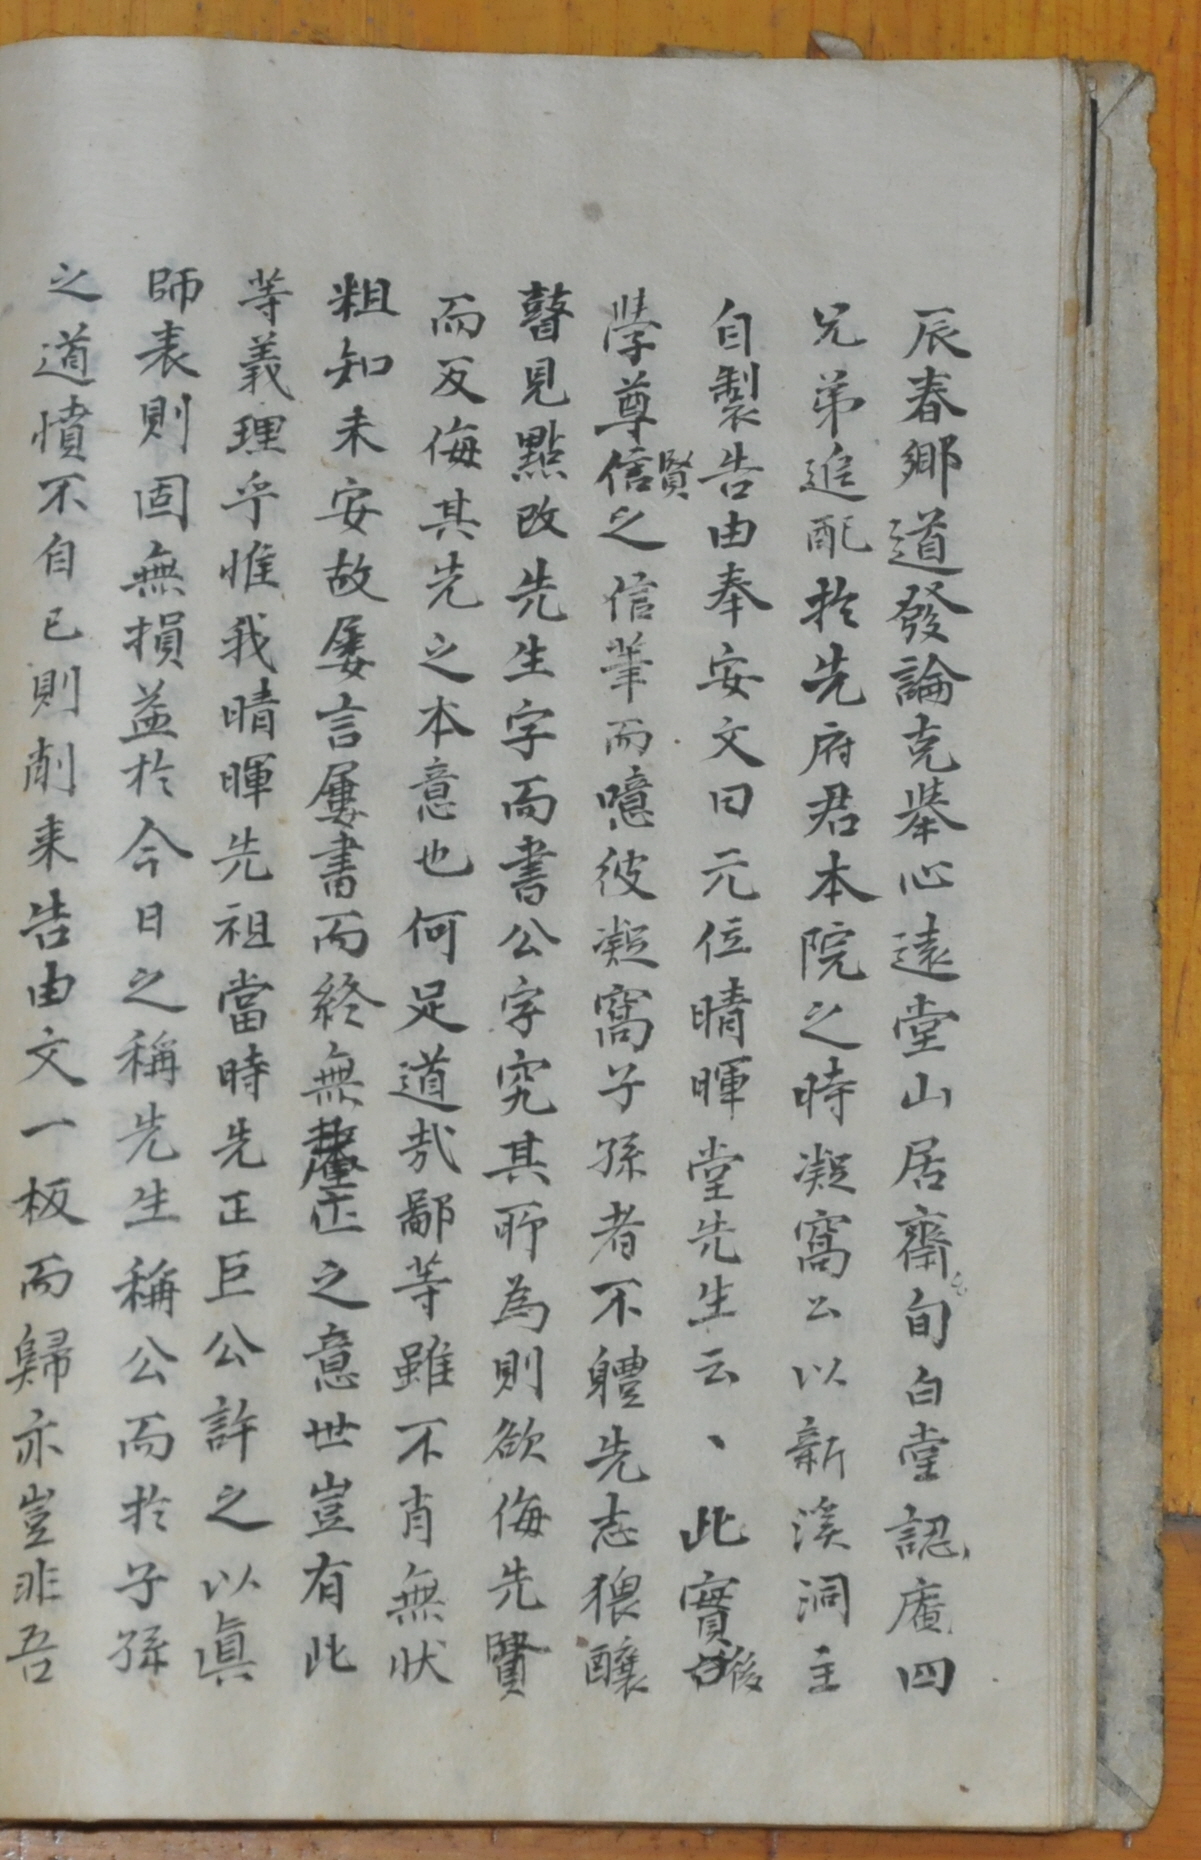 辰春鄉道發論克擧心遠堂山居齋旬白堂認庵四
兄弟追配於先府君本院之時凝窩公以新溪洞主
自製告由奉安文曰元位晴暉堂先生云丶此實後
學尊信賢之信筆而噫彼凝窩子孫者不軆先志猥釀
瞽見點改先生字而書公字究其所為則欲侮先賢
而反侮其先之本意也何足道㢤鄙等雖不肖無狀
粗知未安故屢言屢書而終無釐正之意世豈有此
等義理乎惟我晴暉先祖當時先正巨公許之以眞
師表則固無損益於今日之稱先生稱公而於子孫
之道憤不自已則削来告由文一板而歸亦豈非吾